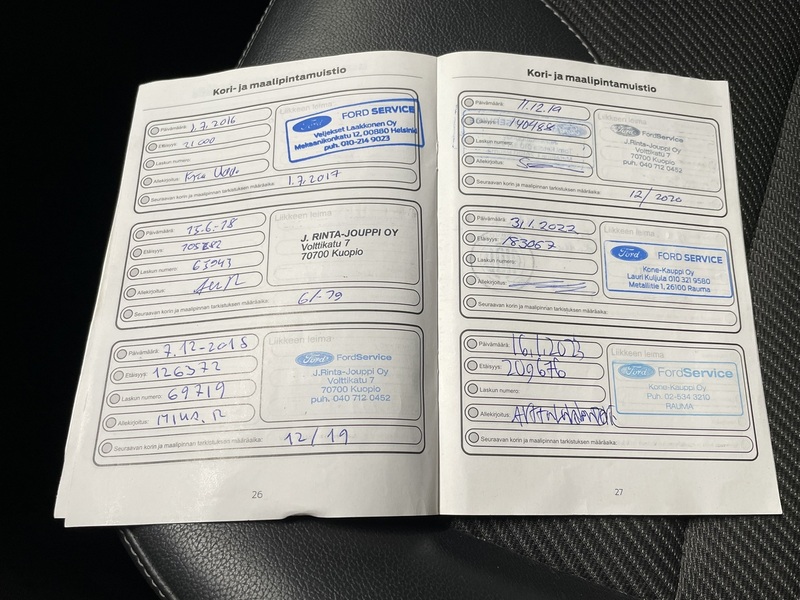 Kori- ja maalipintamuistio
Päivämäärä: 1.7.2016
Etäisyys: 21000
Laskun numero:
Allekirjoitus:
Liikkeen leima
Ford FORD SERVICE
Veljekset Laakkonen Oy
Mekaanikonkatu 12, 00880 Helsinki
puh. 010-214 9023
Seuraavan korin ja maalipinnan tarkistuksen määräaika: 1.7.2017
Päivämäärä: 13.6.-18
Etäisyys:
Laskun numero: 63943
Allekirjoitus:
Liikkeen leima
J. RINTA-JOUPPI OY
Volttikatu 7
70700 Kuopio
Seuraavan korin ja maalipinnan tarkistuksen määräaika: 6/-19
Päivämäärä: 7.12-2018
Etäisyys: 126372
Laskun numero: 69719
Allekirjoitus: Mika. R
Liikkeen leima
Ford FordService
J.Rinta-Jouppi Oy
Volttikatu 7
70700 Kuopio
puh. 040 712 0452
Seuraavan korin ja maalipinnan tarkistuksen määräaika: 12/19
26
Kori- ja maalipintamuistio
Päivämäärä: 11.12.19
Etäisyys: 140488
Laskun numero:
Allekirjoitus:
Liikkeen leima
Ford FordService
J.Rinta-Jouppi Oy
Volttikatu 7
70700 Kuopio
puh. 040 712 0452
Seuraavan korin ja maalipinnan tarkistuksen määräaika: 12/2020
Päivämäärä: 31.1.2022
Etäisyys: 183067
Laskun numero:
Allekirjoitus:
Liikkeen leima
Ford FORD SERVICE
Kone-Kauppi Oy
Lauri Kuljula 010 321 9580
Metallitie 1, 26100 Rauma
Seuraavan korin ja maalipinnan tarkistuksen määräaika:
Päivämäärä: 16.1.2023
Etäisyys: 209676
Laskun numero:
Allekirjoitus:
Liikkeen leima
Ford FordService
Kone-Kauppi Oy
Puh. 02-534 3210
RAUMA
Seuraavan korin ja maalipinnan tarkistuksen määräaika:
27